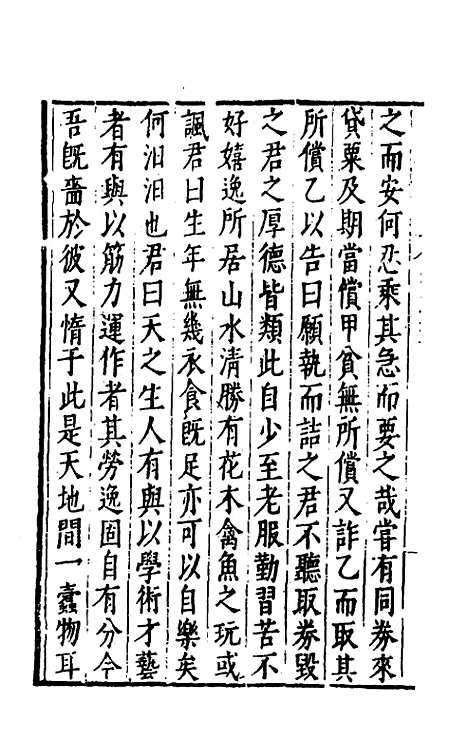 之而安何忍乘其急而要之哉嘗有同券來
貸粟及期當償甲貧無所償又詐乙而取其
所償乙以告曰願執而詰之君不聽取券毀
之君之厚德皆類此自少至老服勤習苦不
好嬉逸所居山水清勝有花木禽魚之玩或
諷君曰生年無幾衣食既足亦可以自樂矣
何汨汨也君曰天之生人有與以學術才藝
者有與以筋力運作者其勞逸固自有分今
吾既嗇於彼又惰于此是天地間一蠹物耳